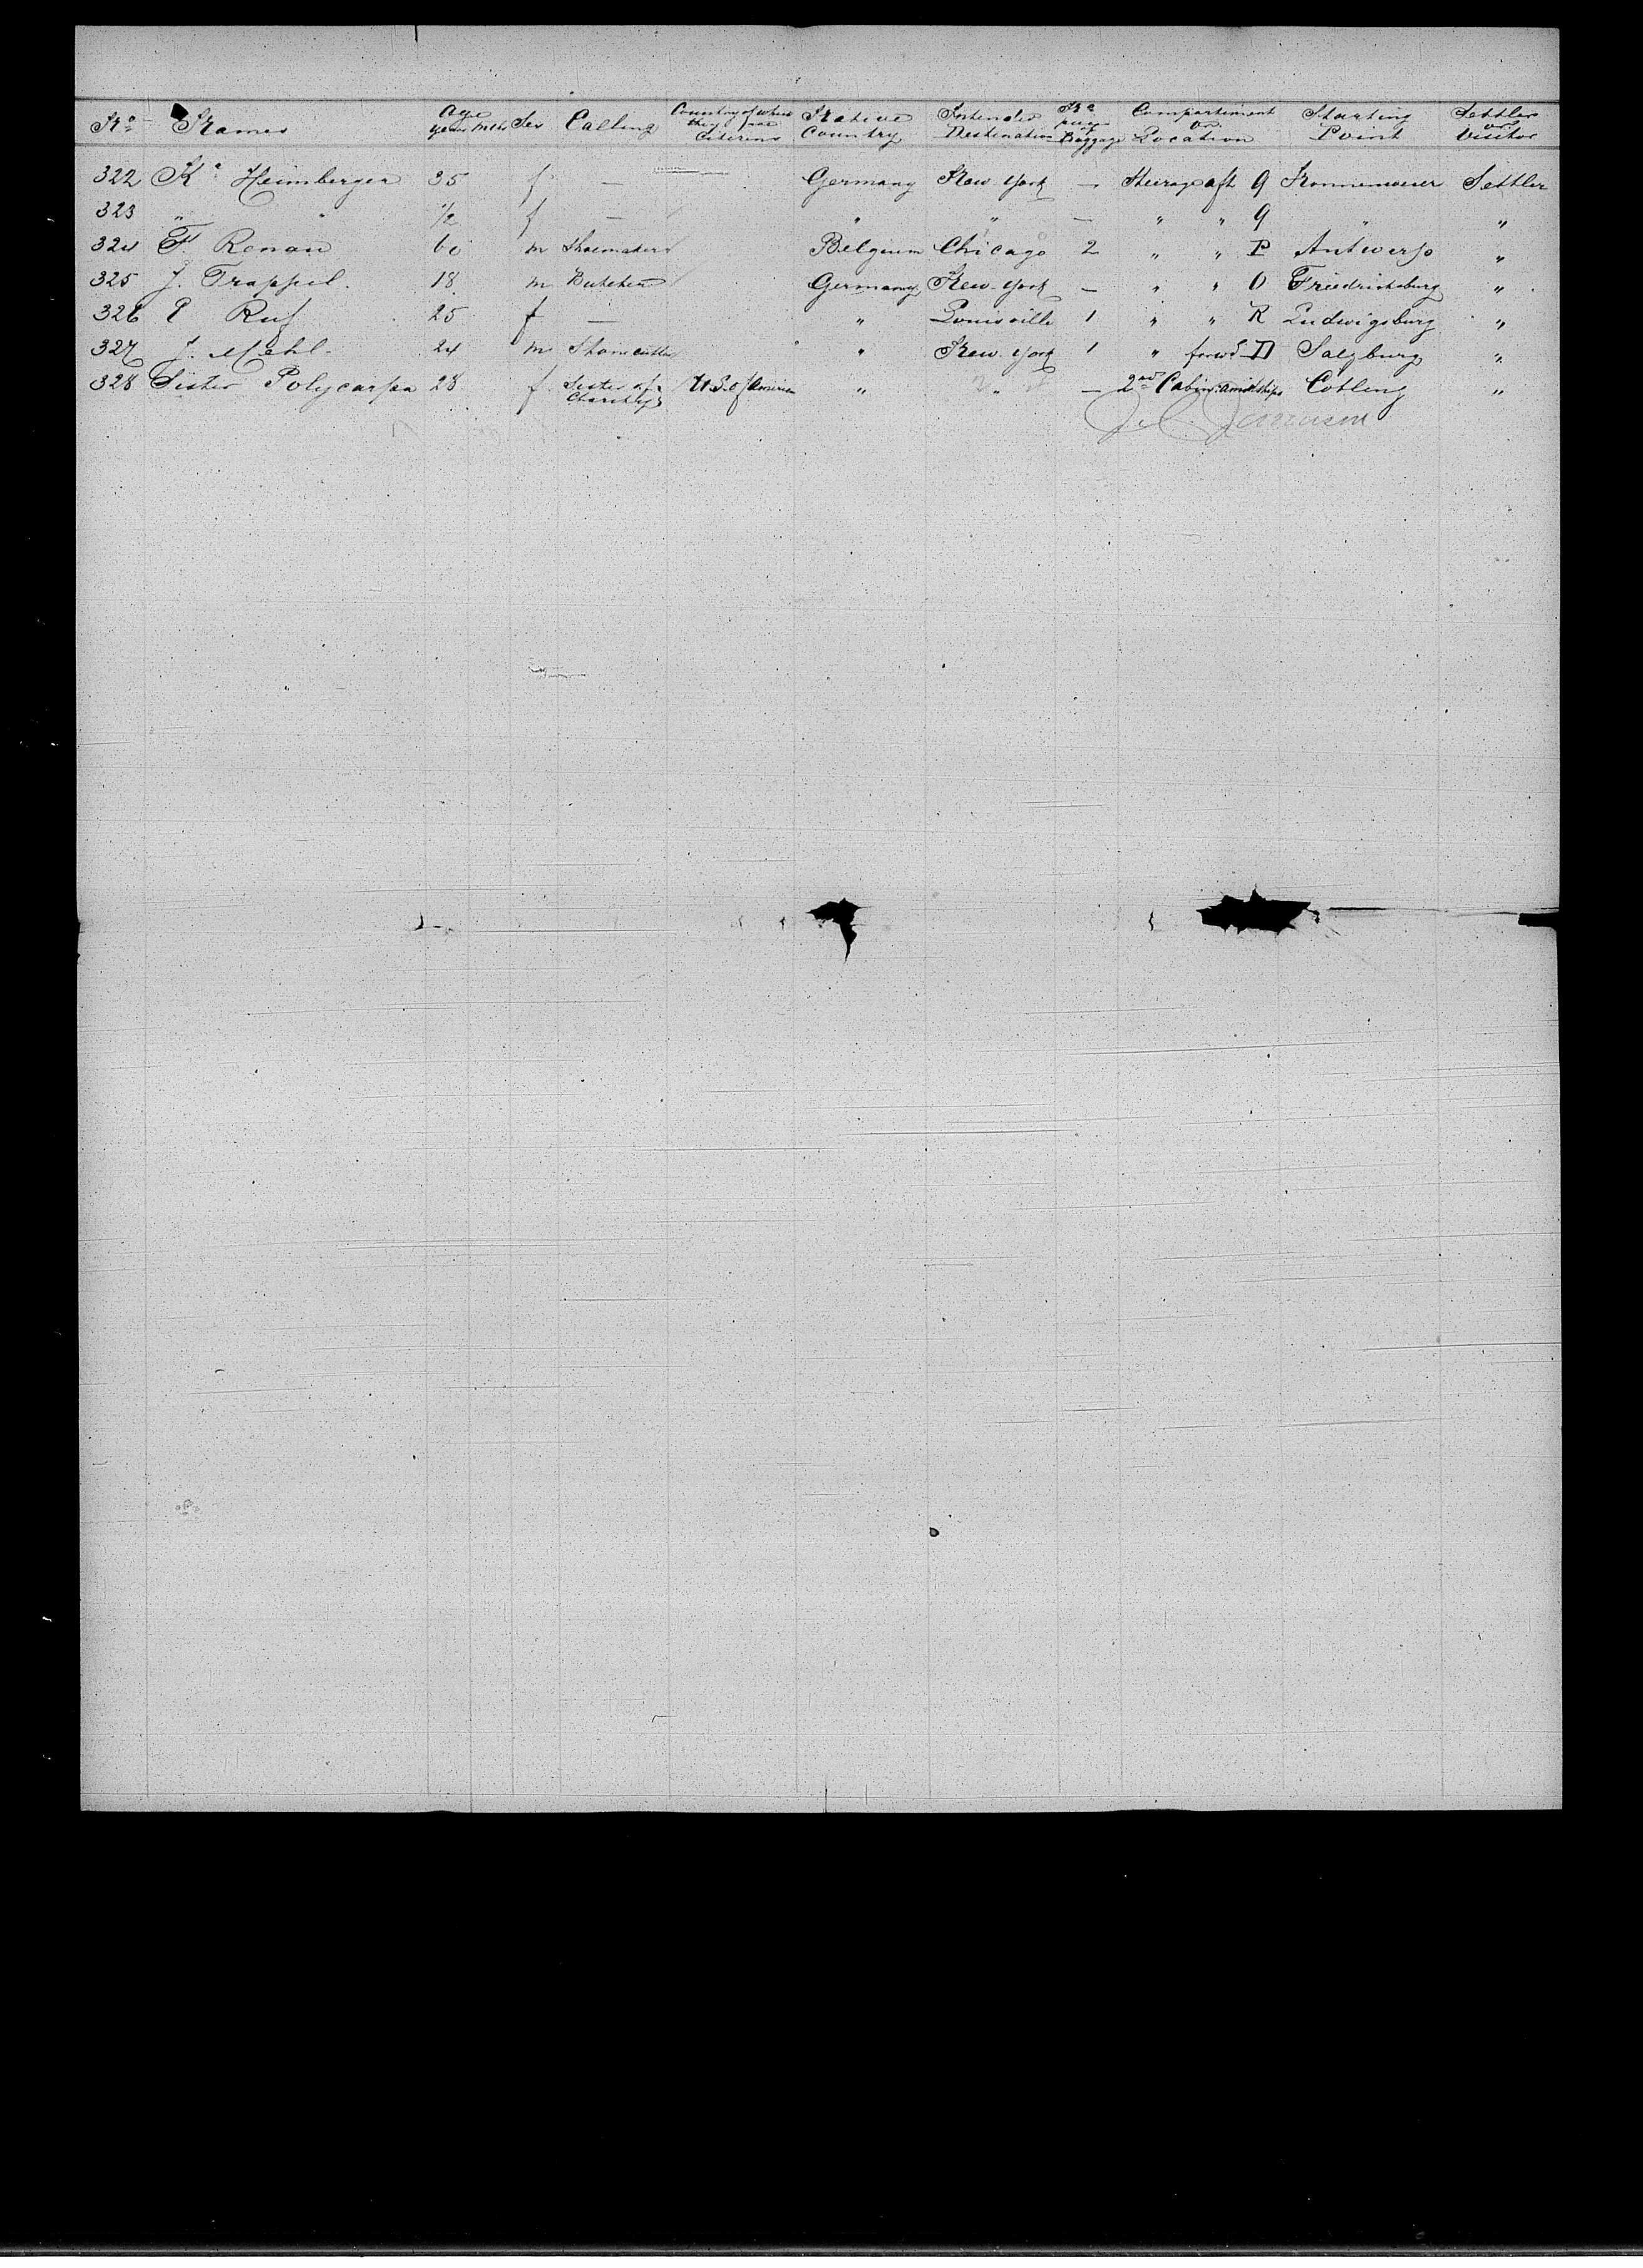 No Names Age years Mths Sex Calling Country of which they are Citizens Native Country Intended Destination No pieces of Baggage Compartment or Location Starting Point Settler or Visitor
322 Ka Heimberger 35 f — Germany New York — Steerage aft Q Settler
323 " " 1/2 f — " " — " " Q " "
324 F. Renau 60 m Shoemaker Belgium Chicago 2 " " P Antwerp "
325 J. Trappel. 18 m Butcher Germany New-York — " " O "
326 Ruf 25 f — " Louisville 1 " " R Ludwigsburg "
327 J. Mehl. 24 m Stonecutter " New York 1 " forwd D Salzburg "
328 Sister Polycarpa 28 f Sister of Charity U.S. of America " " — 2nd Cabin amidships "